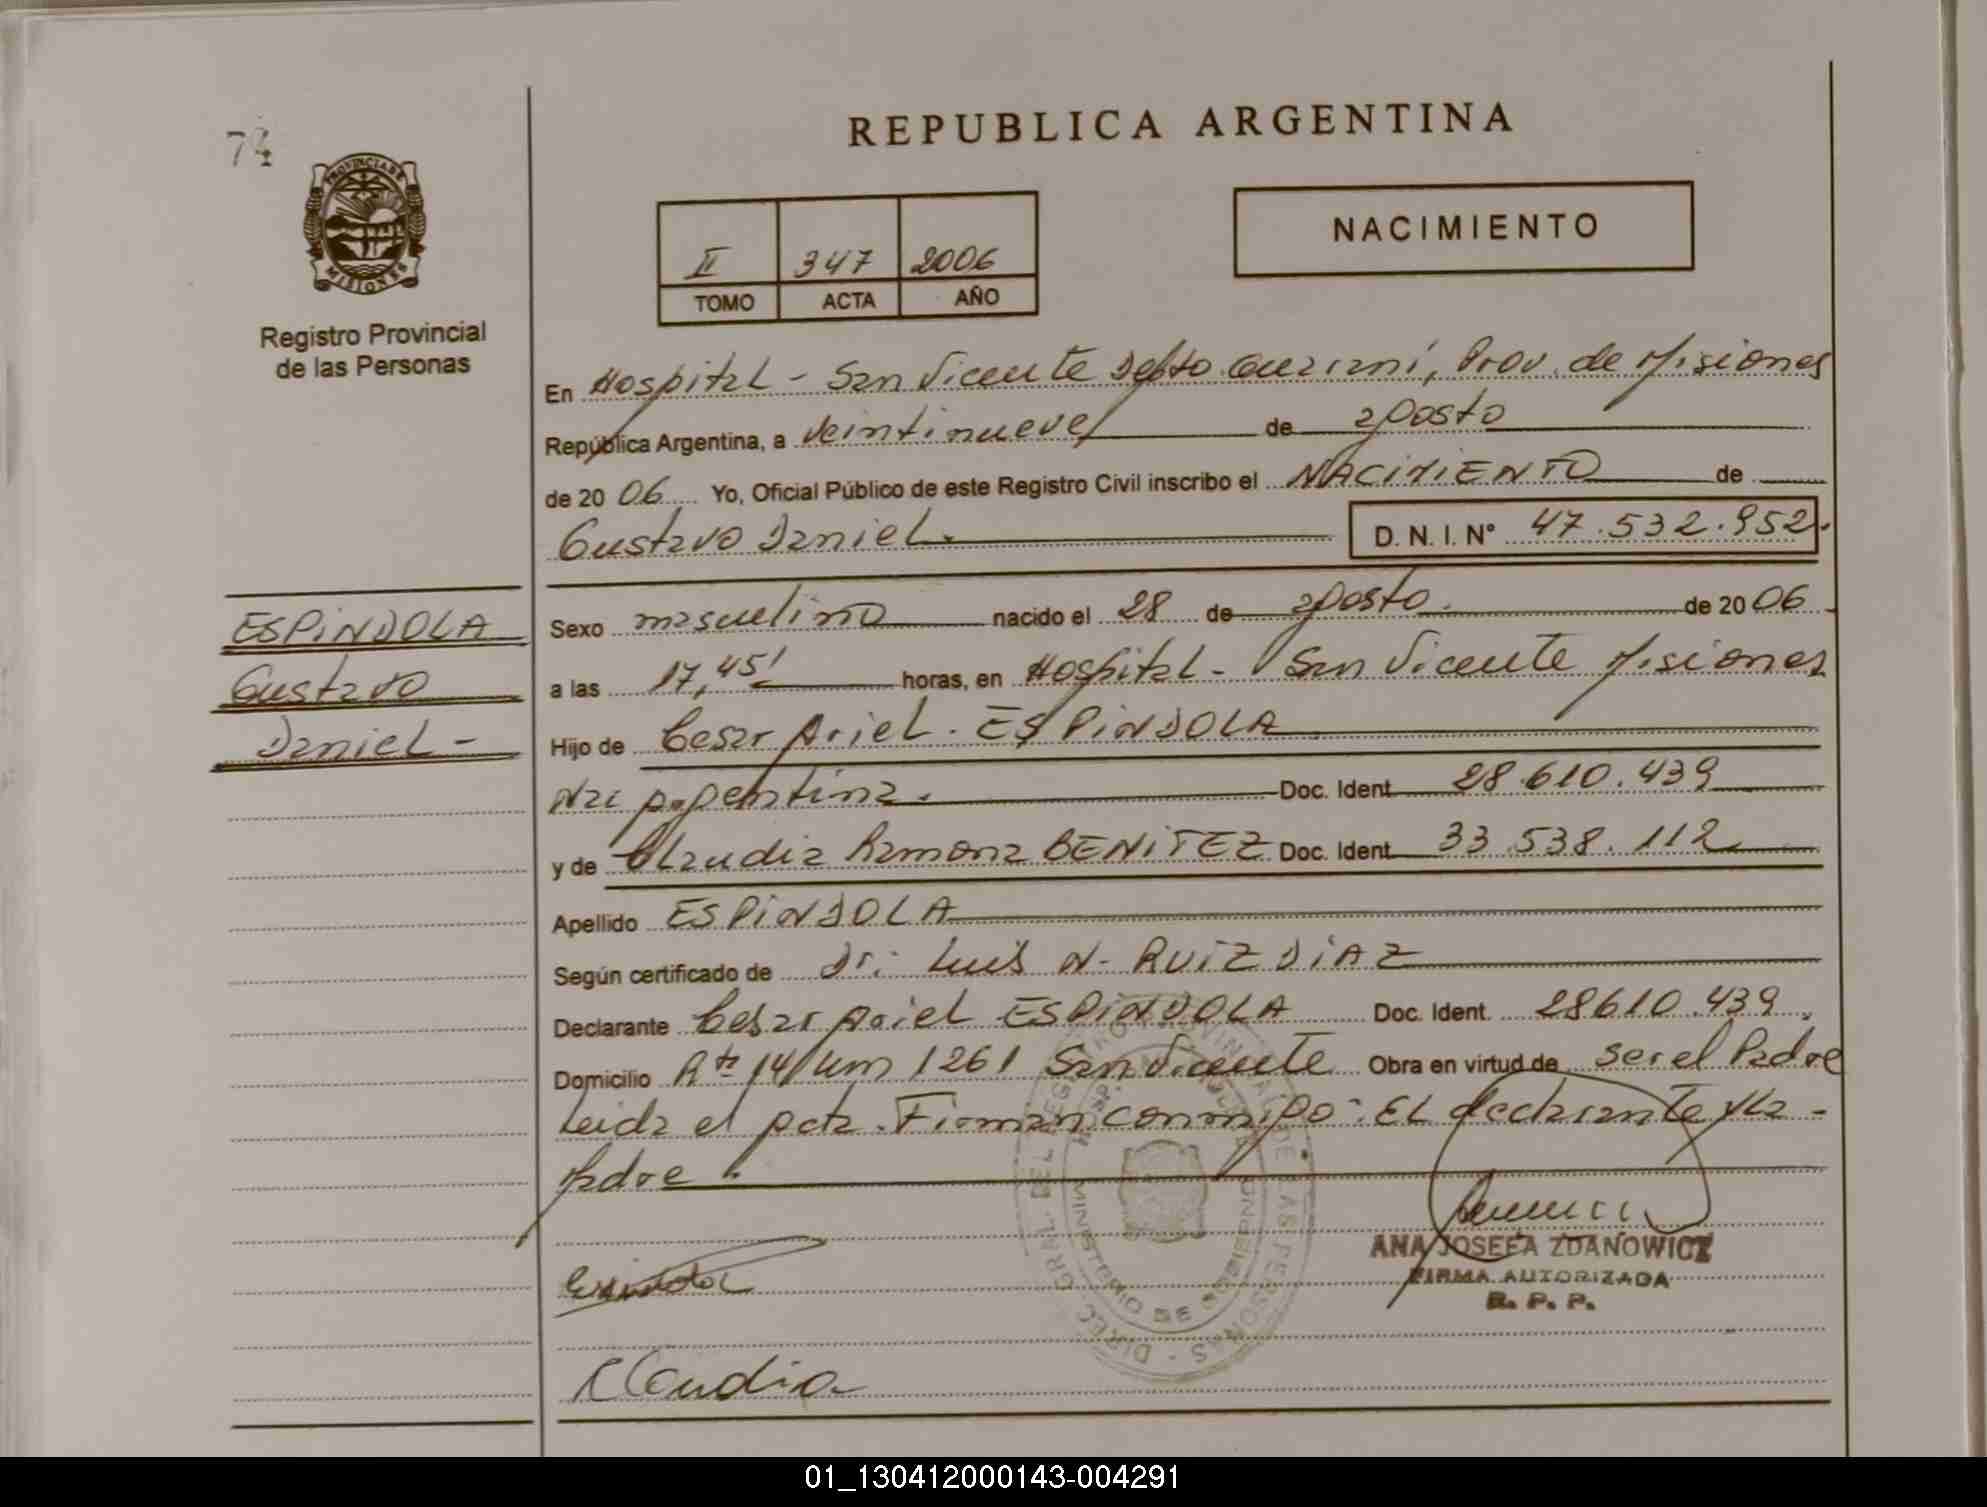 74
PROVINCIA DE
MISIONES
Registro Provincial
de las Personas
ESPINDOLA
Gustavo
Daniel -
REPUBLICA ARGENTINA
II 347 2006
TOMO ACTA AÑO
NACIMIENTO
En Hospital - San Vicente Dpto Guarani, Prov. de Misiones
República Argentina, a veintinueve de agosto
de 20 06 Yo, Oficial Público de este Registro Civil inscribo el NACIMIENTO de
Gustavo Daniel. D. N. I. N° 47.532.952.
Sexo masculino nacido el 28 de agosto. de 20 06
a las 17,45' horas, en Hospital - San Vicente Misiones
Hijo de Cesar Ariel. ESPINDOLA
Nac Argentina. Doc. Ident 28.610.439
y de Claudia Ramona BENITEZ Doc. Ident 33.538.112
Apellido ESPINDOLA
Según certificado de Dr. Luis N. RUIZ DIAZ
Declarante Cesar Ariel ESPINDOLA Doc. Ident. 28610.439.
Domicilio Rta 14 Km 1261 San Vicente Obra en virtud de ser el Padre
Leida el Acta. Firman conmigo: El declarante y la -
Madre
ANA JOSEFA ZDANOWICZ
FIRMA AUTORIZADA
R. P. P.
MINISTERIO DE GOBIERNO
Claudia
01_130412000143-004291